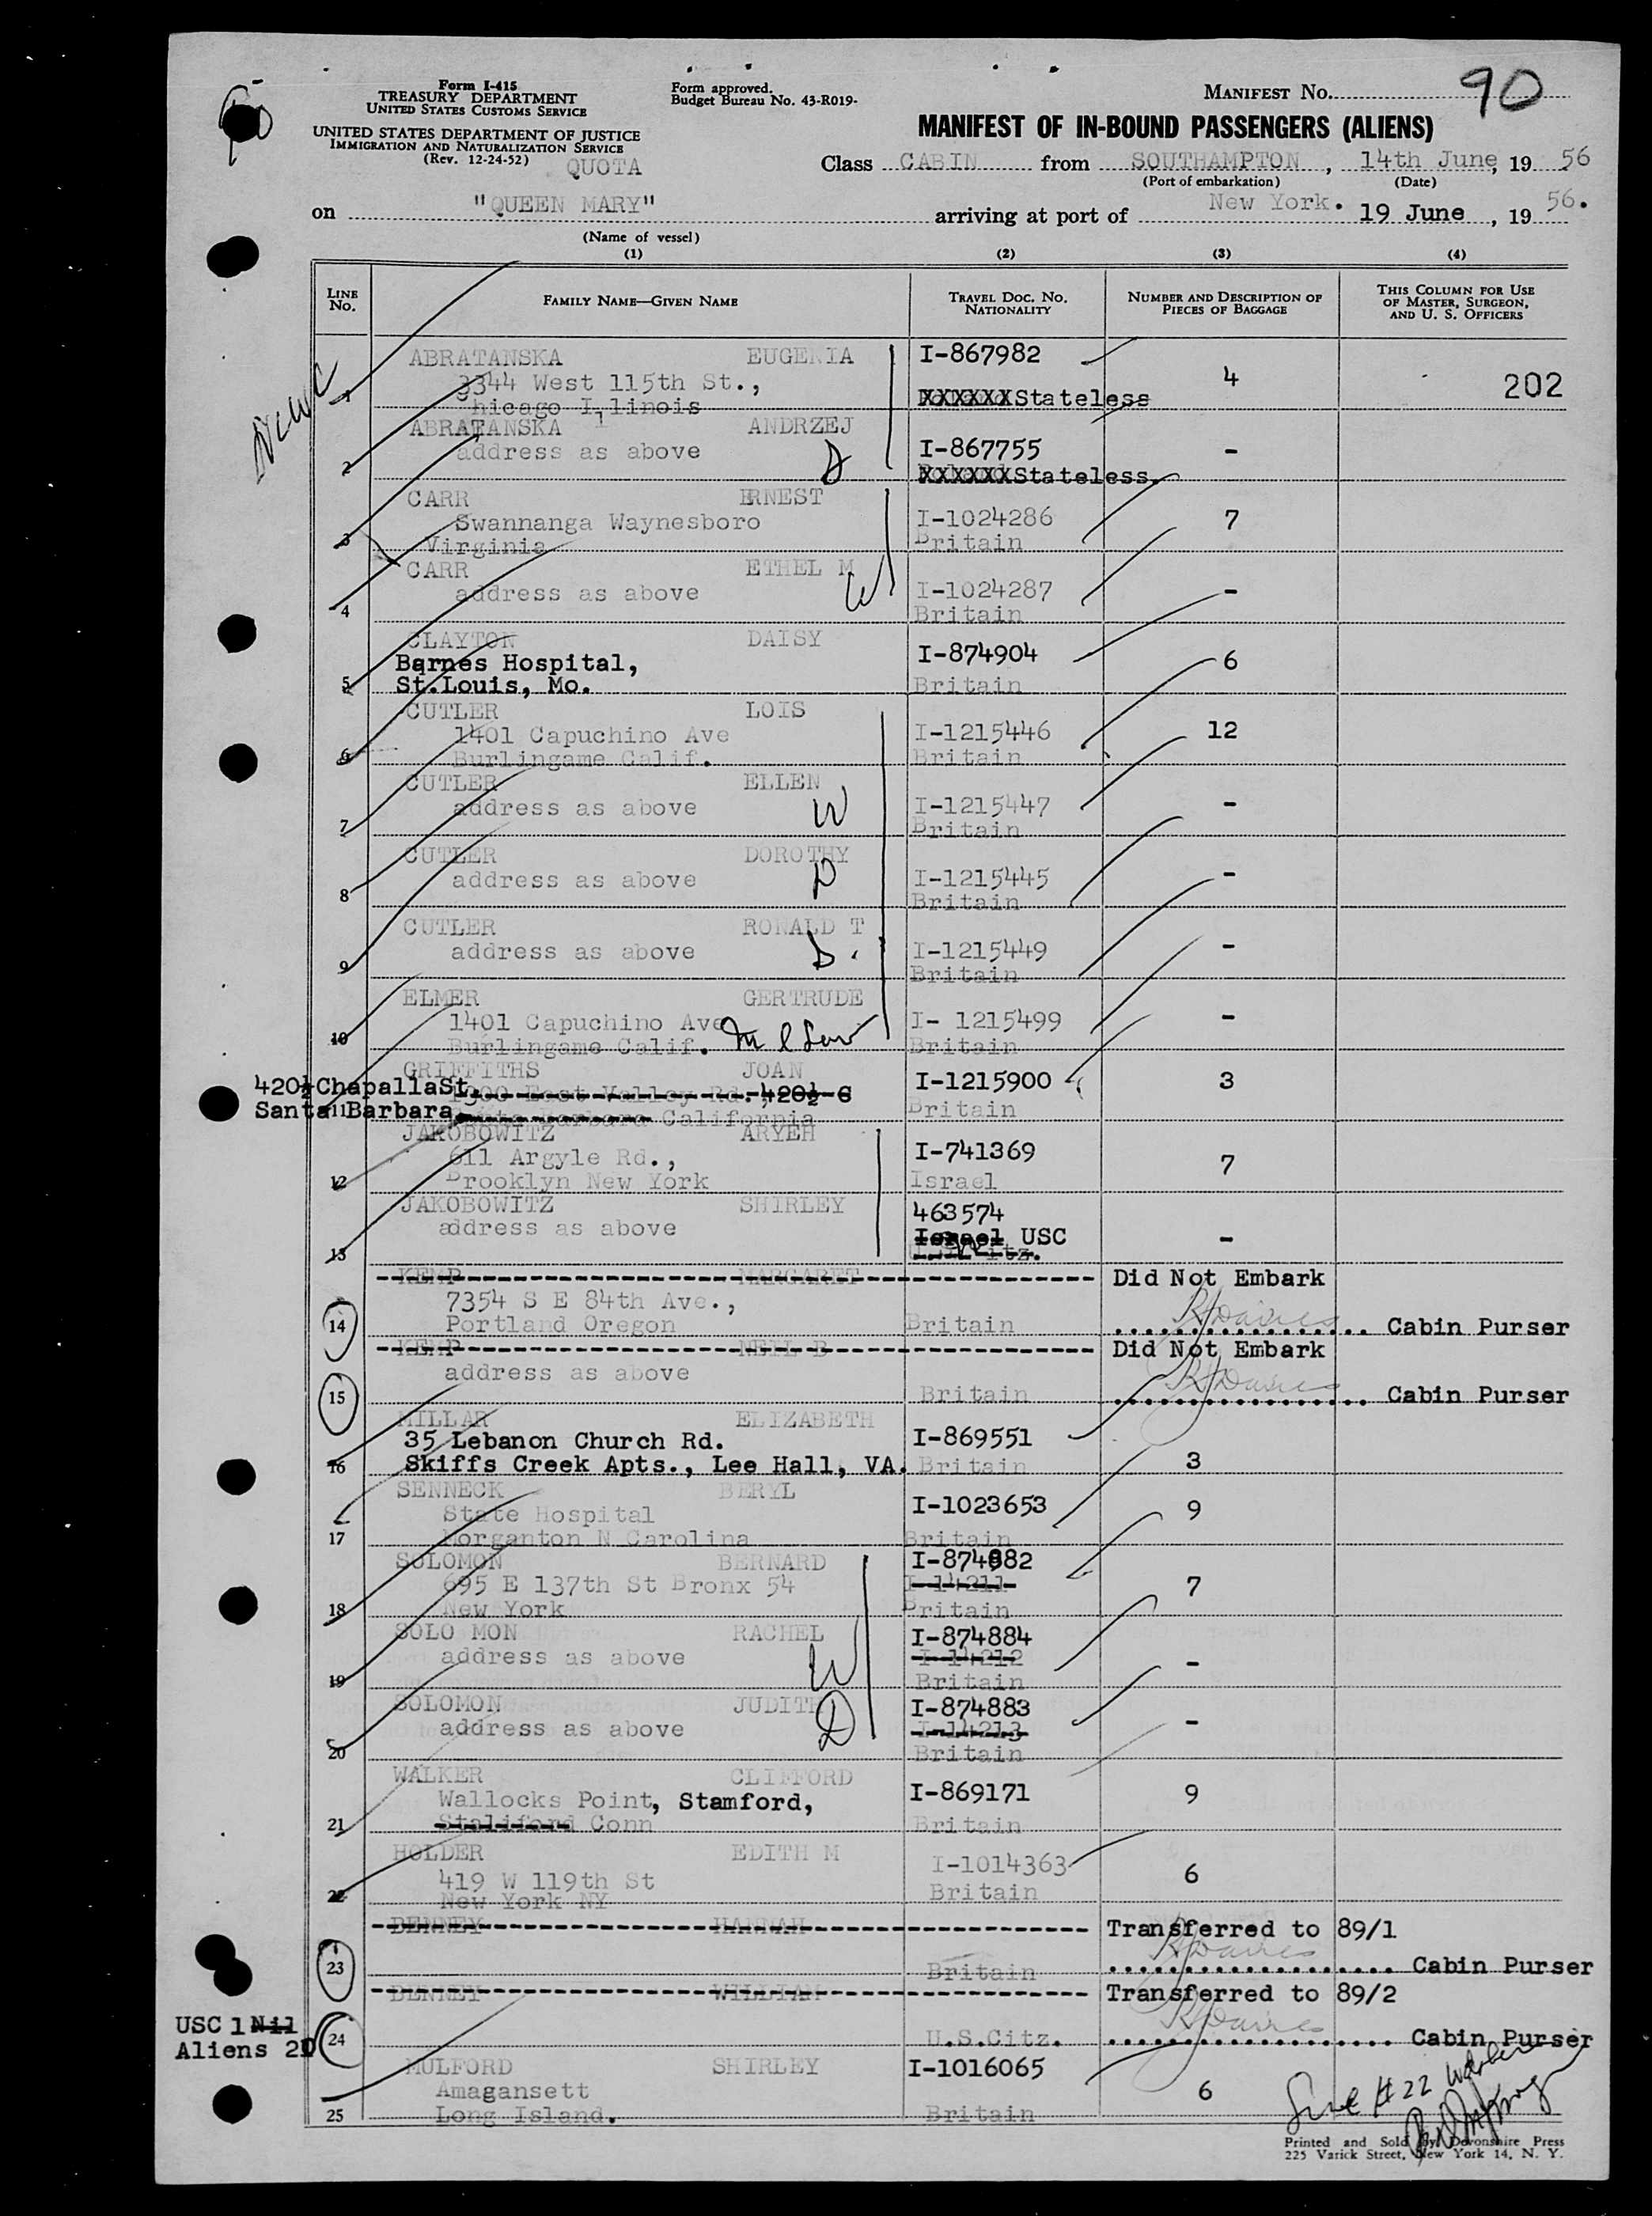 Form I-415
TREASURY DEPARTMENT
UNITED STATES CUSTOMS SERVICE
UNITED STATES DEPARTMENT OF JUSTICE
IMMIGRATION AND NATURALIZATION SERVICE
(Rev. 12-24-52)
QUOTA
Form approved.
Budget Bureau No. 43-R019-
MANIFEST No. 90
MANIFEST OF IN-BOUND PASSENGERS (ALIENS)
Class CABIN from SOUTHAMPTON, 14th June, 19 56
(Port of embarkation) (Date)
on "QUEEN MARY" arriving at port of New York. 19 June, 19 56.
(Name of vessel)
(1) (2) (3) (4)
LINE No. FAMILY NAME—GIVEN NAME TRAVEL DOC. No. NATIONALITY NUMBER AND DESCRIPTION OF PIECES OF BAGGAGE THIS COLUMN FOR USE OF MASTER, SURGEON, AND U. S. OFFICERS
ABRATANSKA EUGENIA I-867982
3344 West 115th St., 4 202
1 Chicago Illinois XXXXXXStateless
ABRATANSKA ANDRZEJ
address as above D I-867755 -
2 XXXXXXStateless
CARR ERNEST
Swannanga Waynesboro I-1024286 7
3 Virginia Britain
CARR ETHEL M
address as above W I-1024287 -
4 Britain
CLAYTON DAISY
Barnes Hospital, I-874904 6
5 St.Louis, Mo. Britain
CUTLER LOIS
1401 Capuchino Ave I-1215446 12
6 Burlingame Calif. Britain
CUTLER ELLEN
address as above W I-1215447 -
7 Britain
CUTLER DOROTHY
address as above D I-1215445 -
8 Britain
CUTLER RONALD T
address as above D. I-1215449 -
9 Britain
ELMER GERTRUDE
1401 Capuchino Ave I- 1215499 -
10 Burlingame Calif. M l Law Britain
GRIFFITHS JOAN
420½ ChapallaSt. 1300 East Valley Rd.,420½ C I-1215900 3
Santa 11 Barbara Santa Barbara California Britain
JAKOBOWITZ ARYEH
611 Argyle Rd., I-741369 7
12 Brooklyn New York Israel
JAKOBOWITZ SHIRLEY 463574
address as above Israel USC -
13 U.S.Citz.
KEMP MARGARET Did Not Embark
7354 S E 84th Ave.,
14 Portland Oregon Britain Cabin Purser
KEMP NEIL B Did Not Embark
address as above
15 Britain Cabin Purser
MILLAR ELIZABETH
35 Lebanon Church Rd. I-869551
16 Skiffs Creek Apts., Lee Hall, VA. Britain 3
SENNECK BERYL
State Hospital I-1023653 9
17 Morganton N Carolina Britain
SOLOMON BERNARD I-874882
695 E 137th St Bronx 54 I-14211 7
18 New York Britain
SOLO MON RACHEL I-874884
address as above W I-14212 -
19 Britain
SOLOMON JUDITH I-874883
address as above D I-14213 -
20 Britain
WALKER CLIFFORD
Wallocks Point, Stamford, I-869171 9
21 Conn Britain
HOLDER EDITH M
419 W 119th St I-1014363 6
22 New York NY Britain
BENNEY HANNAH Transferred to 89/1
23 Britain Cabin Purser
BENNEY WILLIAM Transferred to 89/2
USC 1 Nil
24 U.S.Citz. Cabin Purser
Aliens 2
MULFORD SHIRLEY I-1016065
Amagansett 6
25 Long Island. Britain
Line # 22
Printed and Sold by Devonshire Press
225 Varick Street, New York 14, N. Y.